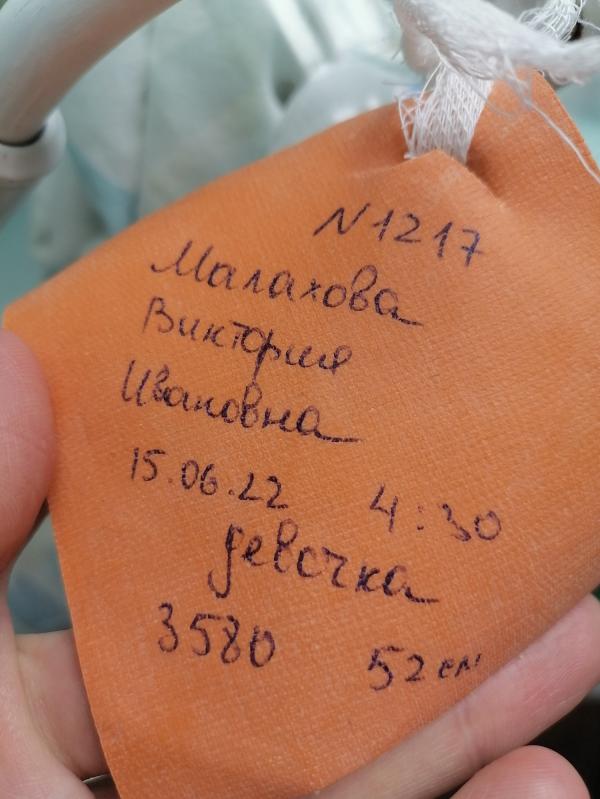 N1217
Малахова
Виктория
Ивановна
15.06.22 4:30
девочка
3580 52 см